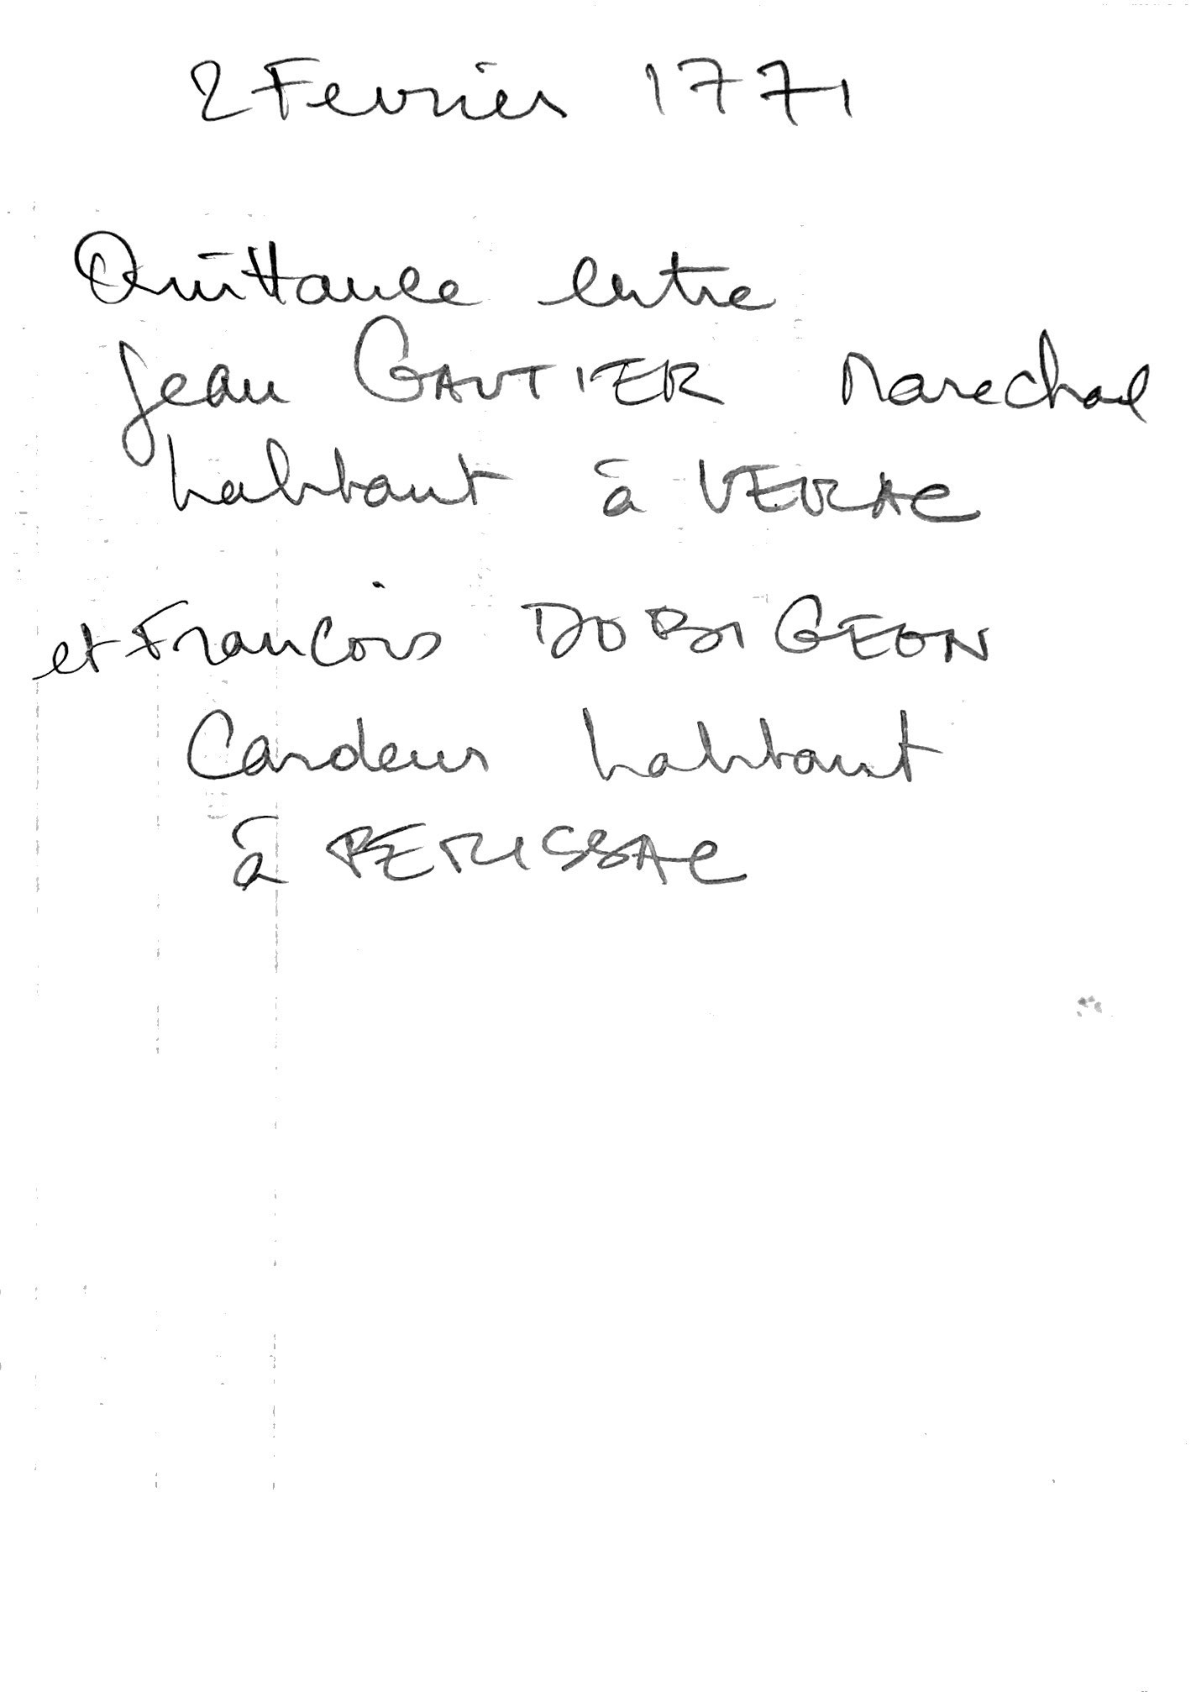 2 Fevrier 1771
Quittance entre
Jean GAUTIER Marechal
habitant à VERAC
et Francois DOBIGEON
Cardeur habitant
à PERISSAC